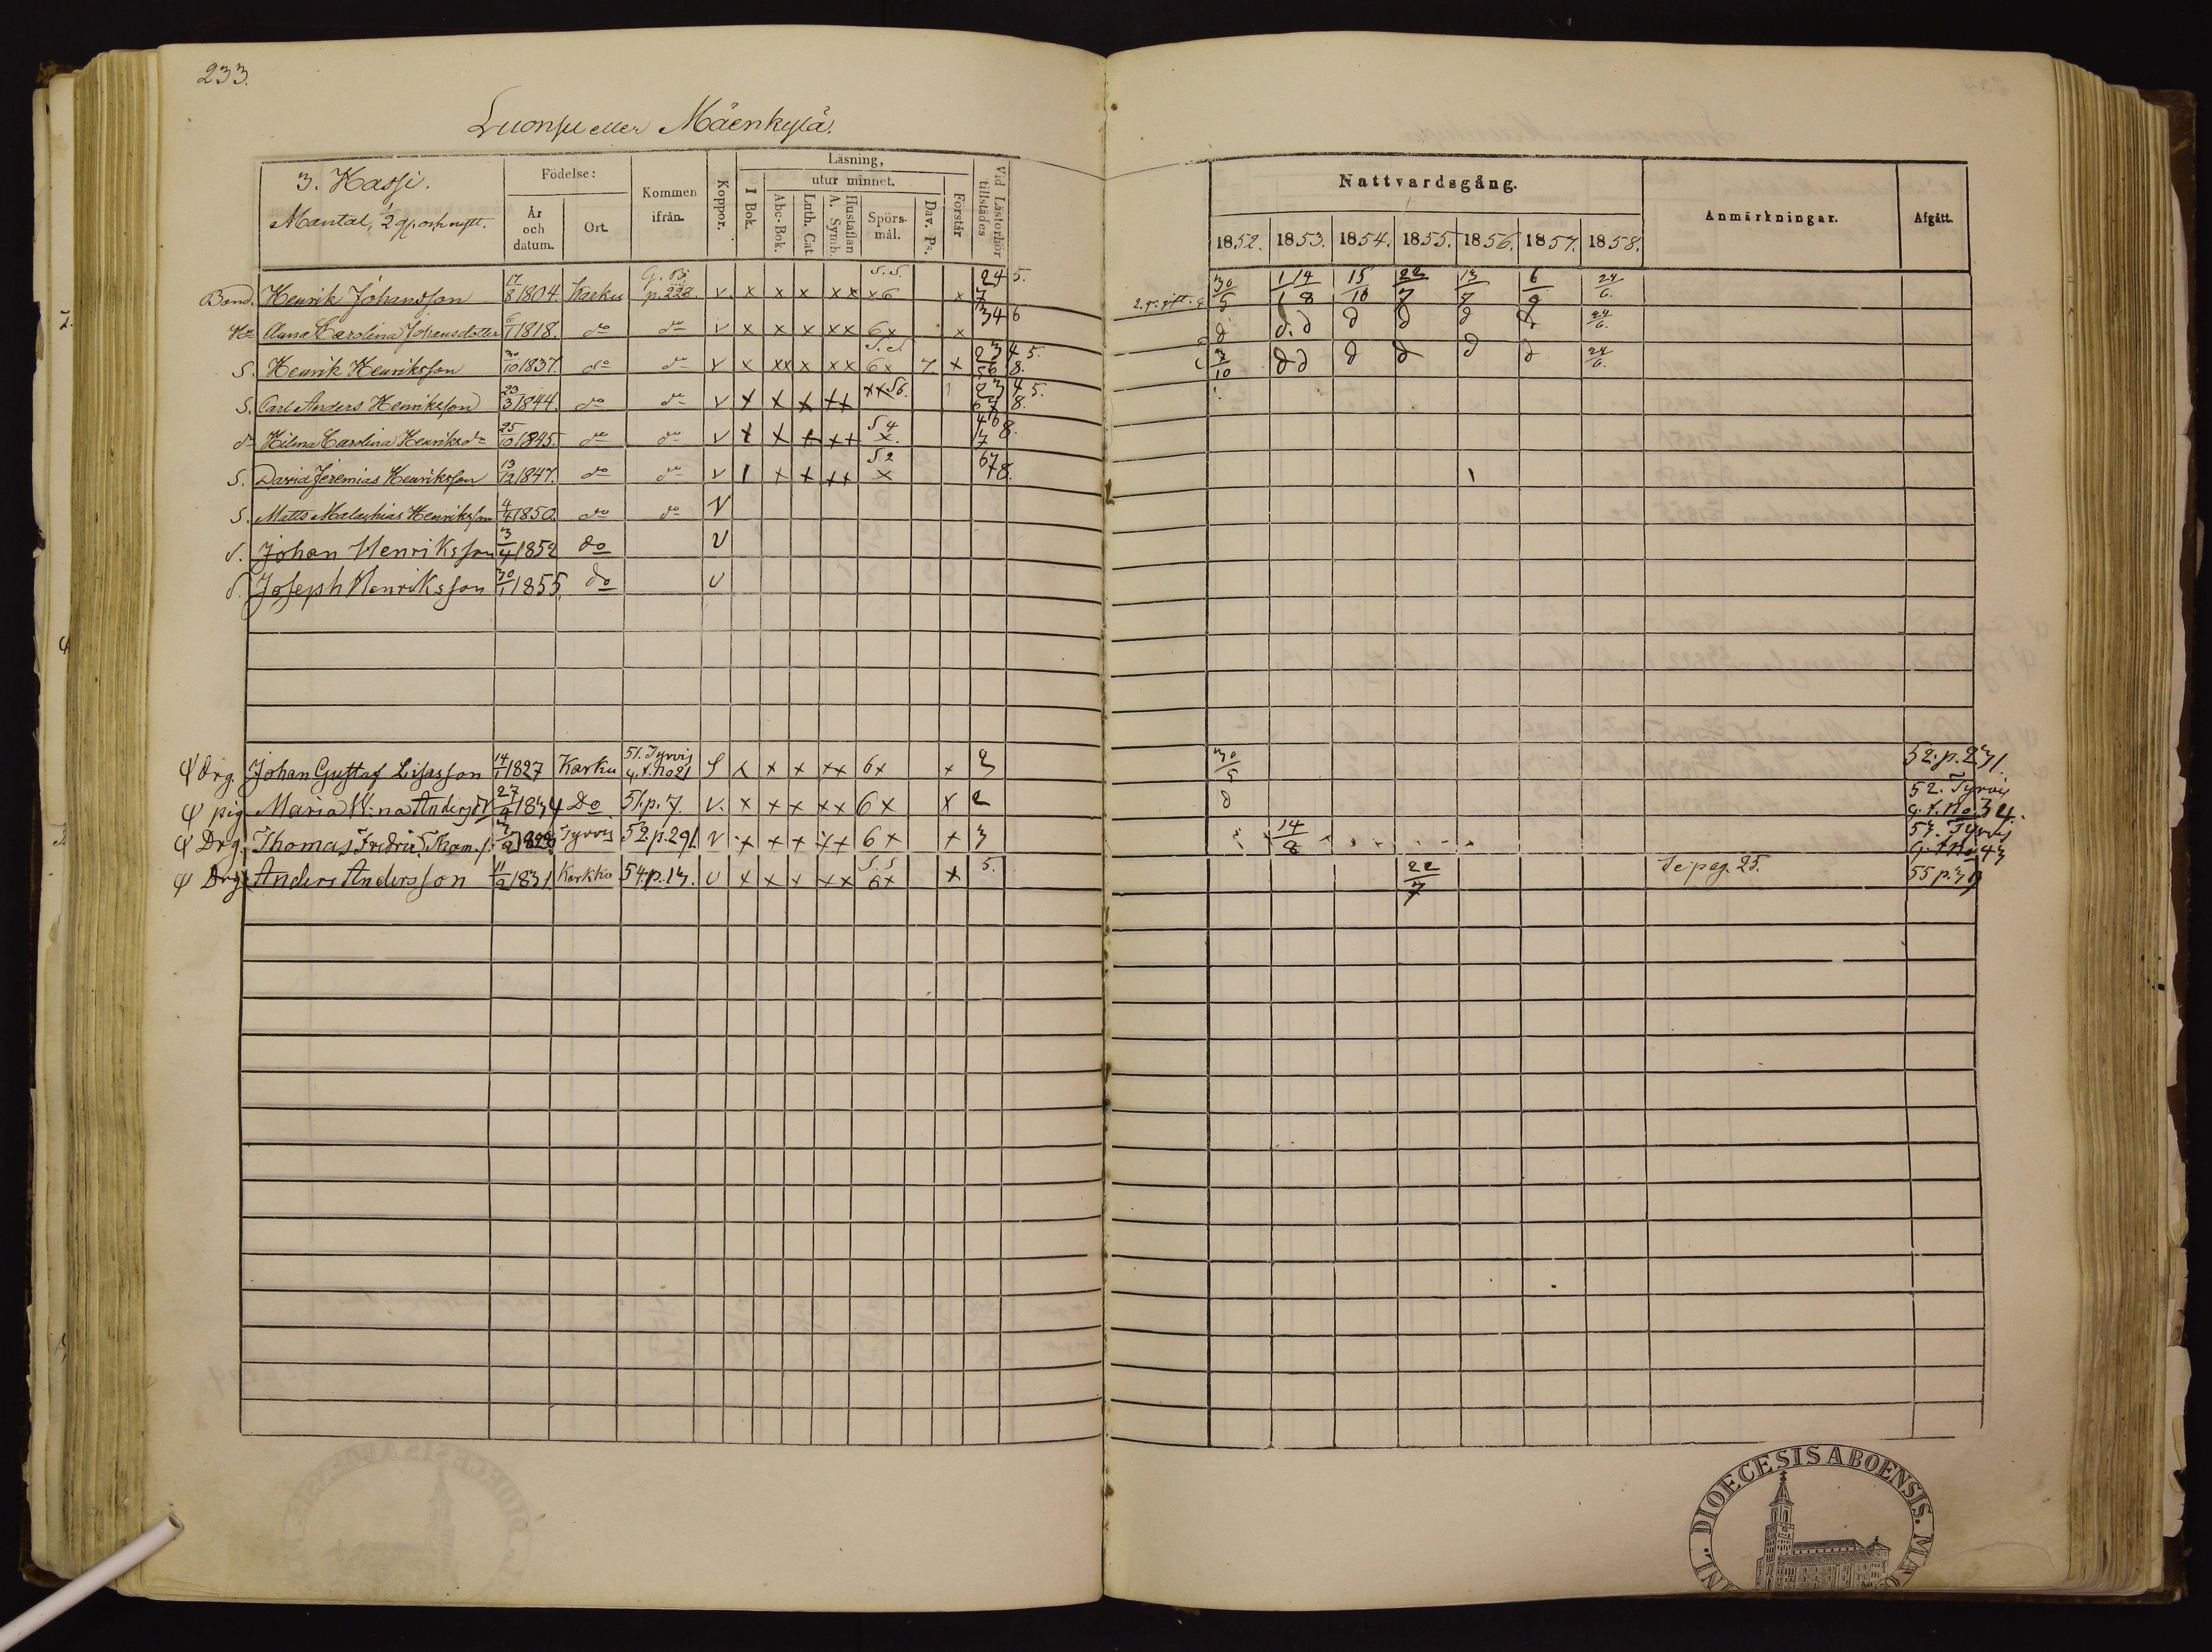 233.
Luonsu eller Mäenkylä.
3. Hassi.
Mantal,
Födelse:
År och datum.
Ort.
Kommen ifrån.
Koppor.
Läsning,
I Bok.
utur minnet.
Abc-Bok.
Luth. Cat.
Hustaflan A. Symb.
Spörs-mål.
Dav. Ps.
Förstår
Vid Läsförhör tillstädes
Nattvardsgång.
1852. 1853. 1854. 1855. 1856. 1857. 1858.
Anmärkningar.
Afgått.
Bond. Henrik Johansson 17/8 1804. Karku G. B. p. 228. v. x x x xx x6 x 5. 2. gr. gift. 30/5 14/8 15/10 22/7 13/7 6/9 24/6.
Anna Carolina Johansdotter 6/1 1818. do do v x x x xx 6x x 3 4 6 d d. d d d d d 24/6.
S. Henrik Henriksson 30/10 1837. do do v x xx x xx 6x 7 x 2 3 4 5. 5 6 8. 3/10 d d d d d d 24/6.
S. Carl Anders Henriksson 23/3 1844. do do v x x x xx 2 3 4 5. 6 7 8.
dr Hilma Carolina Henriksdr 25/10 1845. do do v x x x xx S 4 x. 4 6 7 8.
S. David Jeremias Henriksson 13/12 1847. do do v 1 x x xx S 2 x 6 7 8.
S. Matts Malachias Henriksson 4/4 1850. do do v
S. Johan Henriksson 3/4 1852 do v
S. Joseph Henriksson 30/1 1855. do v
Drg. Johan Gustaf Lisasson 14/1 1827 Karku 51. Tyrvis g. t. No 21 S x x x xx 6x x 2 30/5 52. p. 231.
pig. Maria W:na Andersdr 27/9 1834 Do 51. p. 7. v. x x x xx 6x x 2 d 52. Tyrvis g. t. No 34.
Drg. Thomas Fredric Thom. s. Tyrvis 52. p. 291. v x x x xx 6x x 3 14/8 53. Tyrvis g. t. No 43
Drg. Anders Andersson 11/9 1831 Karkku 54. p. 13. v x x x xx S. S 6x x 5. 22/7 Se pag. 25. 55 p. 39
DIOECESIS ABOENSIS.